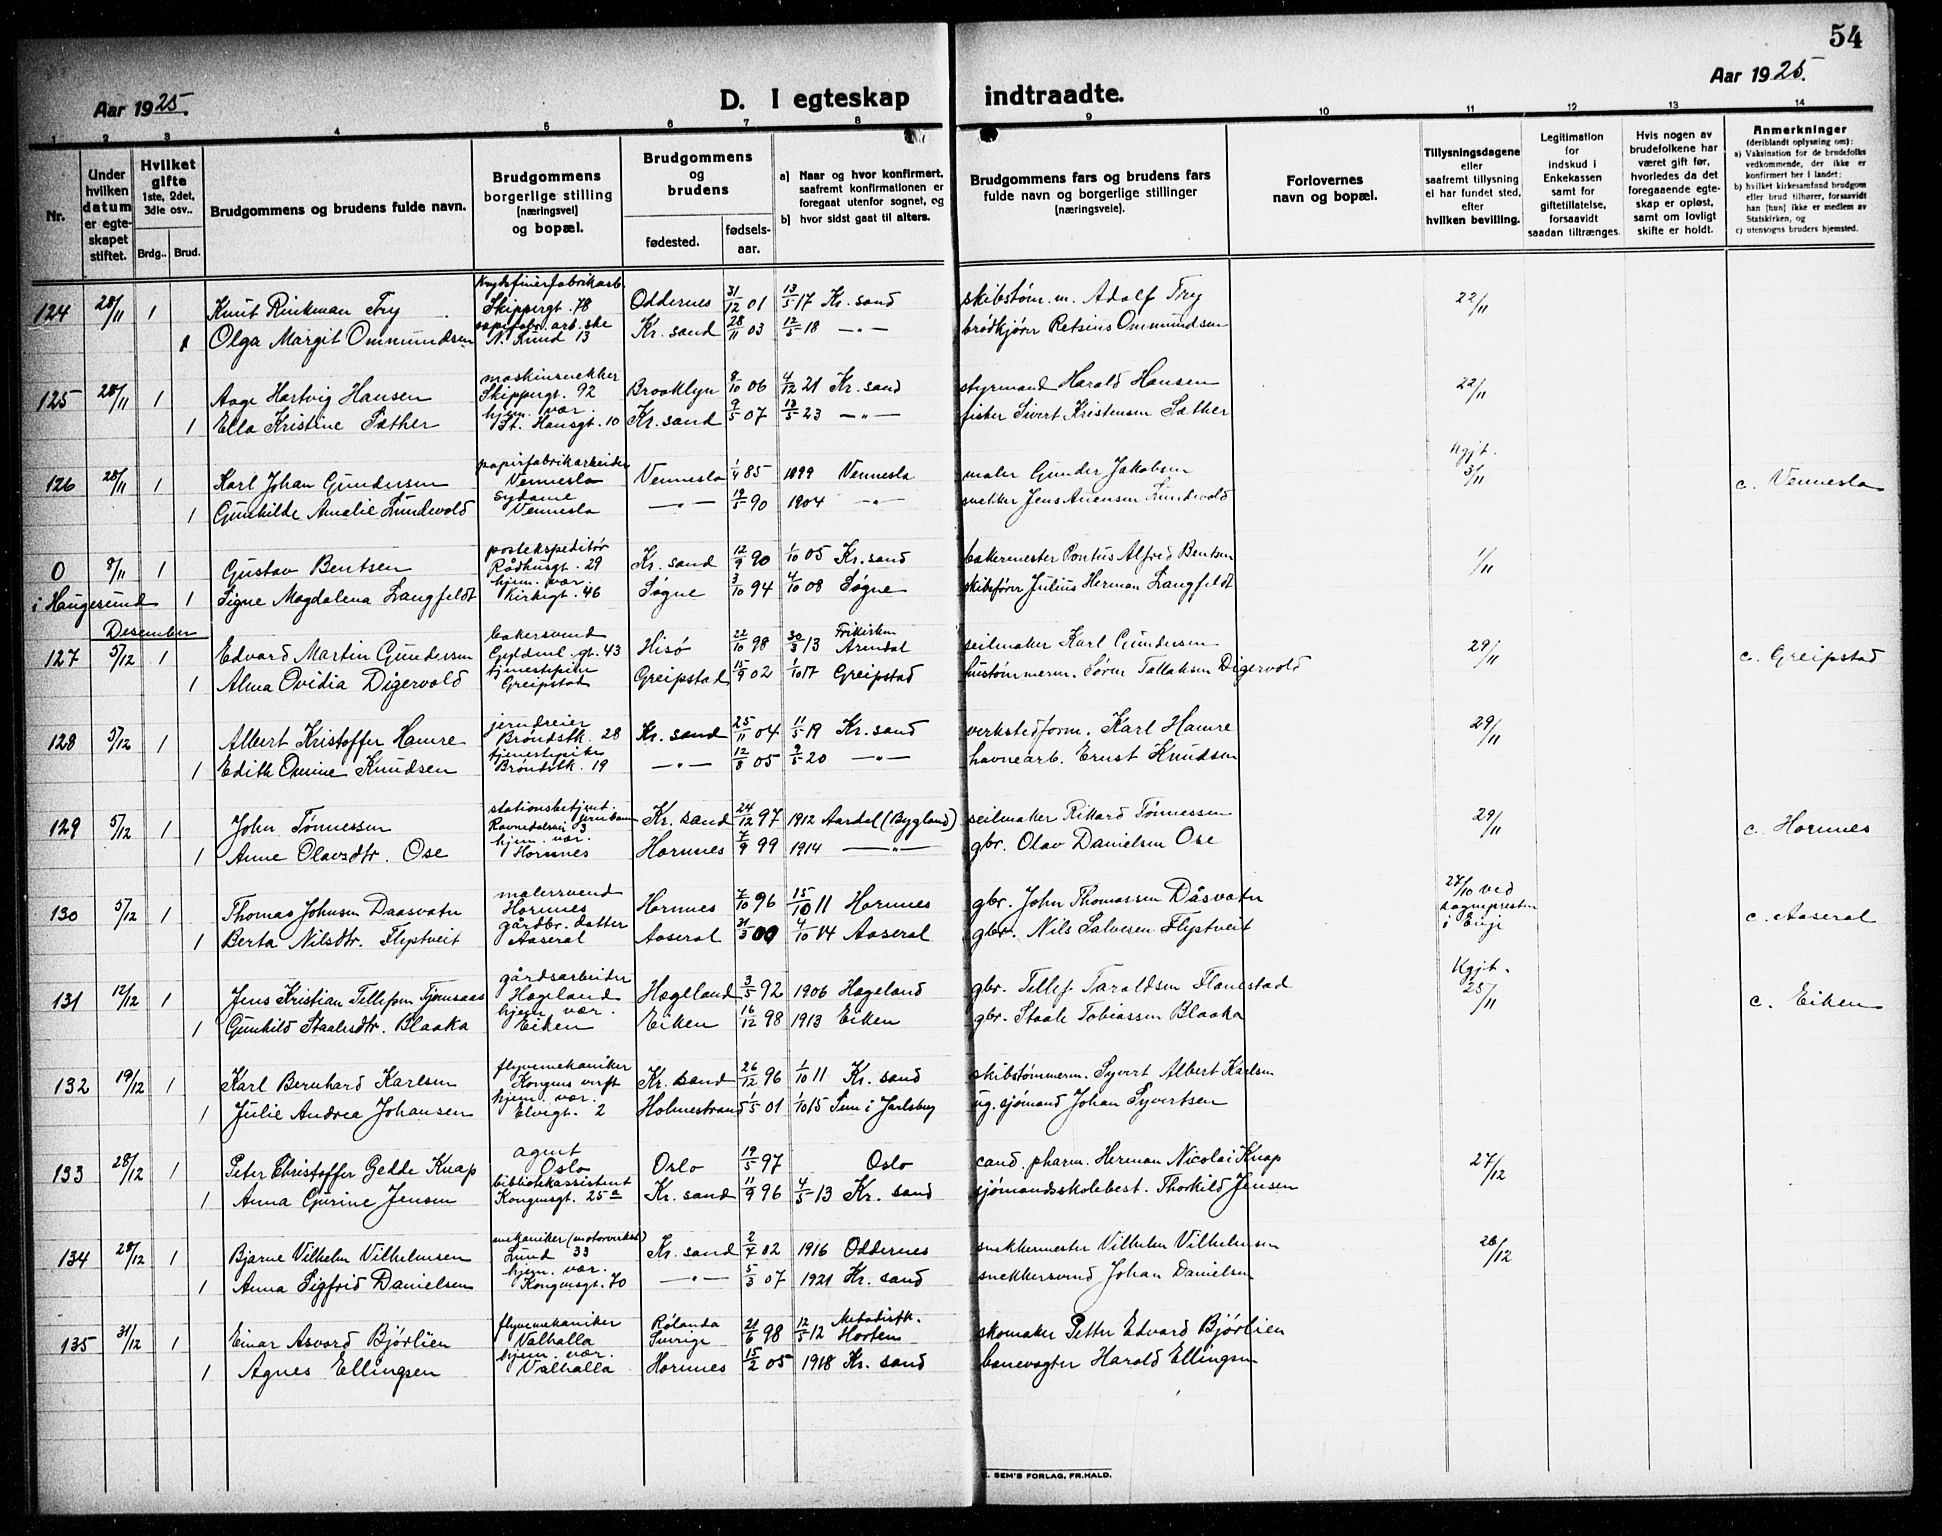 54
Aar 1925.
D. I egteskap indtraadte.
Aar 1925.
1 2 3 4 5 6 7 8 9 10 11 12 13 14
Nr.
Under hvilken datum er egte-skapet stiftet.
Hvilket gifte 1ste, 2det, 3die osv..
Brdg.. Brud.
Brudgommens og brudens fulde navn.
Brudgommens borgerlige stilling (næringsvei) og bopæl.
Brudgommens og brudens
fødested. fødsels-aar.
a) Naar og hvor konfirmert, saafremt konfirmationen er foregaat utenfor sognet, og
b) hvor sidst gaat til alters.
Brudgommens fars og brudens fars fulde navn og borgerlige stillinger (næringsveie).
Forlovernes navn og bopæl.
Tillysningsdagene eller saafremt tillysning ei har fundet sted, efter hvilken bevilling.
Legitimation for indskud i Enkekassen samt for giftetillatelse, forsaavidt saadan tiltrænges.
Hvis nogen av brudefolkene har været gift før, hvorledes da det foregaaende egte-skap er opløst, samt om lovligt skifte er holdt.
Anmerkninger (deriblandt oplysning om):
a) Vaksination for de brudefolks vedkommende, der ikke er konfirmert her i landet;
b) hvilket kirkesamfund brudgom eller brud tilhører, forsaavidt han [hun] ikke er medlem av Statskirken, og
c) utensogns bruders hjemsted.
124 28/11 1 Knut Rinkman Try Skippergt. 78 Oddernes 31/12 01 13/5 17 Kr. sand skibstøm.m. Adolf Try 22/11
1 Olga Margit Ommundsen N. Kund 13 Kr. sand 28/11 03 12/5 18 —"— brødkjører Retsius Ommundsen
125 28/11 1 Aage Hartvig Hansen maskinsnekker Skippergt. 92 Brooklyn 8/10 06 4/12 21 Kr. sand styrmand Harald Hansen 22/11
1 Ella Kristine Sæther hjem. vær. St. Hansgt. 10 Kr. sand 9/5 07 13/5 23 —"— fisker Sivert Kristensen Sæther
126 28/11 1 Karl Johan Gundersen papirfabrikarbeider Vennesla Vennesla 1/4 85 1899 Vennesla maler Gunder Jakobsen Kgjt. 3/11 c. Vennesla
1 Gunhilde Amalie Lundevold sydame Vennesla —"— 19/5 90 1904 —"— snekker Jens Auensen Lundevold
0 8/11 1 Gustav Bentsen postekspeditør Rådhusgt. 29 Kr. sand 12/9 90 1/10 05 Kr. sand bakermester Pontus Alfred Bentsen 1/11
i Haugesund 1 Signe Magdalena Langfeldt hjem. vær. Kirkegt. 46 Søgne 3/10 94 4/10 08 Søgne skibsfører Julius Herman Langfeldt
Desember
127 5/12 1 Edvard Martin Gundersen bakersvend Gyldenl. gt. 43 Hisø 22/10 98 30/3 13 Frikirken Arendal seilmaker Karl Gundersen 29/11 c. Greipstad
1 Alma Ovidia Digervold tjenestepike Greipstad Greipstad 15/9 02 1/10 17 Greipstad hustømmerm. Søren Tallaksen Digervold
128 5/12 1 Albert Kristoffer Hamre jerndreier Brøndstk. 28 Kr. sand 25/11 04 11/5 19 Kr. sand verkstedform. Karl Hamre 29/11
1 Edith Omine Knudsen tjenestepike Brøndstk. 19 —"— 12/8 05 9/5 20 —"— havnearb. Ernst Knudsen
129 5/12 1 John Tønnessen stationsbetjent. jernban Ravnedalsvei 3 Kr. sand 24/12 97 1912 Aardal (Bygland) seilmaker Rikard Tønnessen 29/11 c. Hornnes
1 Anne Olavsdtr. Ose hjem. vær. Hornnes Hornnes 7/9 99 1914 —"— gbr. Olav Danielsen Ose
130 5/12 1 Thomas Johnsen Daasvatn malersvend Hornnes Hornnes 7/10 96 15/10 11 Hornnes gbr. John Thomassen Dåsvatn 27/10 ved sognepresten i Evje c. Aaseral
1 Berta Nilsdtr. Flystveit gårdbr. datter Aaseral Aaseral 31/3 00 4/10 14 Aaseral gbr. Nils Salvesen Flystveit
131 12/12 1 Jens Kristian Tellefsen Tjomsaas gårdsarbeider Hægeland Hægeland 3/5 92 1906 Hægeland gbr. Tellef Taraldsen Flanestad Kgjt. 25/11 c. Eiken
1 Gunhild Staalesdtr. Blaaka hjem. vær. Eiken Eiken 16/12 98 1913 Eiken gbr. Staale Tobiassen Blaaka
132 19/12 1 Karl Bernhard Karlsen flyvemekaniker Kongens verft Kr. sand 26/12 96 1/10 11 Kr. sand skibstømmerm. Syvert Albert Karlsen
1 Julie Andrea Johansen hjem. vær. Elvegt. 2 Holmestrand 1/5 01 1/10 15 Sem i Jarlsberg ug. sjømand Johan Syvertsen
133 28/12 1 Peter Christoffer Gedde Knap agent Oslo Oslo 19/5 97 Oslo cand. pharm. Herman Nicolai Knap 27/12
1 Anna Gurine Jensen bibliotekassistent Kongensgt. 25a Kr. sand 11/9 96 4/5 13 Kr. sand sjømandsskolebest. Thorkild Jensen
134 28/12 1 Bjarne Vilhelm Vilhelmsen mekaniker (motorverkst.) Lund 33 Kr. sand 2/7 02 1916 Oddernes snekkermester Vilhelm Vilhelmsen 26/12
1 Anna Sigfrid Danielsen hjem. vær. Kongensgt. 70 —"— 5/3 07 1921 Kr. sand snekkersvend Johan Danielsen
135 31/12 1 Einar Asvard Bjørlien flyvemekaniker Valhalla Rølanda Sverige 21/6 98 12/5 12 Metodistk. Horten skomaker Petter Edvard Bjørlien
1 Agnes Ellingsen hjem. vær. Valhalla Hornnes 15/2 05 1918 Kr. sand banevogter Harald Ellingsen
SEM'S FORLAG, FR.HALD.